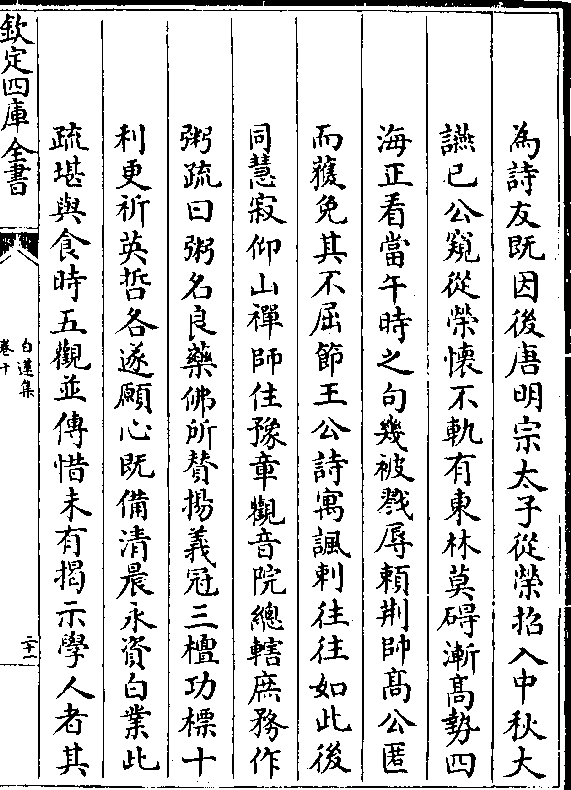 為詩友既因後唐明宗太子從榮招入中秋大
讌已公窺從榮懷不軌有東林莫碍漸高勢四
海正看當午時之句幾被戮辱頼荆帥髙公匿
而獲免其不屈節王公詩寓諷刺往往如此後
同慧寂仰山禪師住豫章觀音院總轄庶務作
粥疏曰粥名良藥佛所賛揚義冠三檀功標十
利更祈英哲各遂願心既備清晨永資白業此
疏堪與食時五觀並傳惜未有揭示學人者其
欽定四庫全書
白蓮集
卷十
二十一